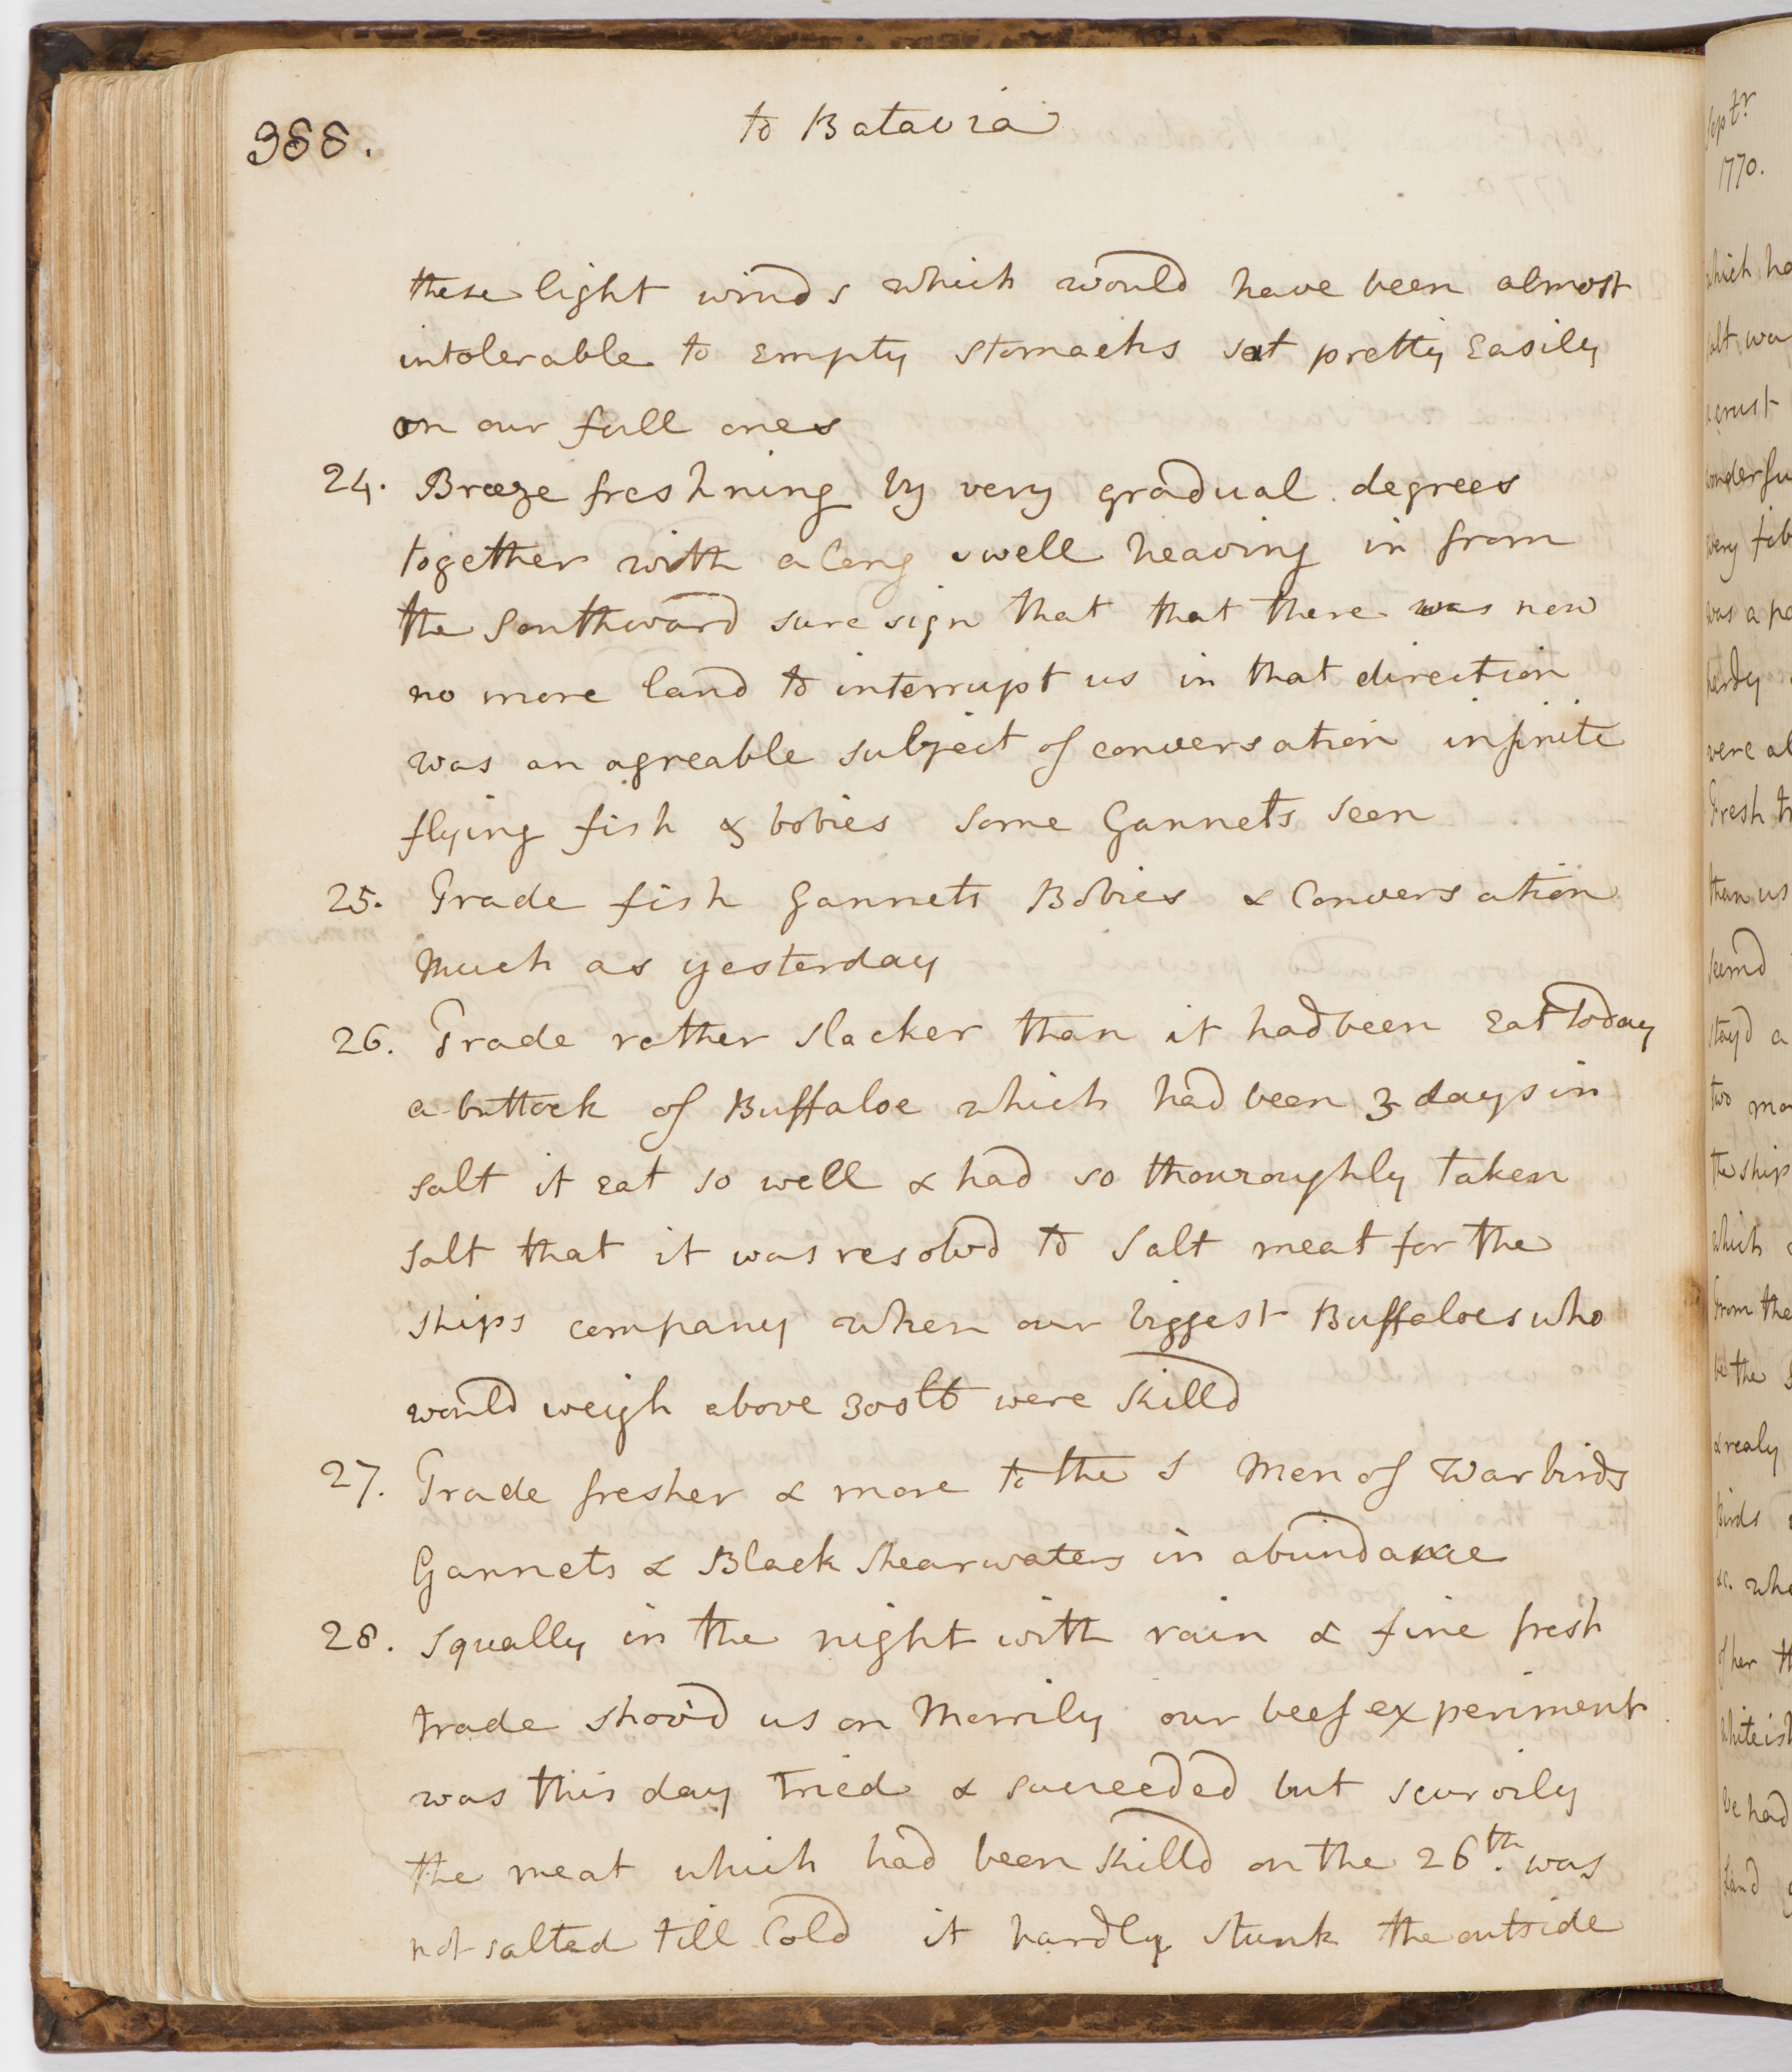 388.
to Batavia
these light winds which would have been almost
intolerable to Empty stomachs sat pretty Easily
on our full ones
24. Breeze freshning by very gradual degrees
together with a long swell heaving in from
the Southward sure sign that that there was now
no more land to interrupt us in that direction
was an agreable subject of conversation infinite
flying fish & bobies some Gannets seen
25. Trade fish Gannets Bobies & Conversation
Much as yesterday
26. Trade rather slacker than it had been Eat Today
a buttock of Buffaloe which had been 3 days in
salt it eat so well & had so thouroughly taken
salt that it was resolvd to Salt meat for the
ships company when our biggest Buffaloes who
would weigh above 300lb were killd
27. Trade fresher & more to the S Men of War birds
Gannets & Black shearwaters in abundance
28. Squally in the night with rain & fine fresh
trade shov'd us on Merrily our beef experiment
was this day tried & succeeded but scurvily
the meat which had been killd on the 26th. was
not salted till Cold it hardly stunk the outside
Septr.
1770.
which
crust
very
was a
were
Fresh
than us
seemd
stayd a
two
the ship
which
from the
the
& realy
Birds
&c.
of her
we had